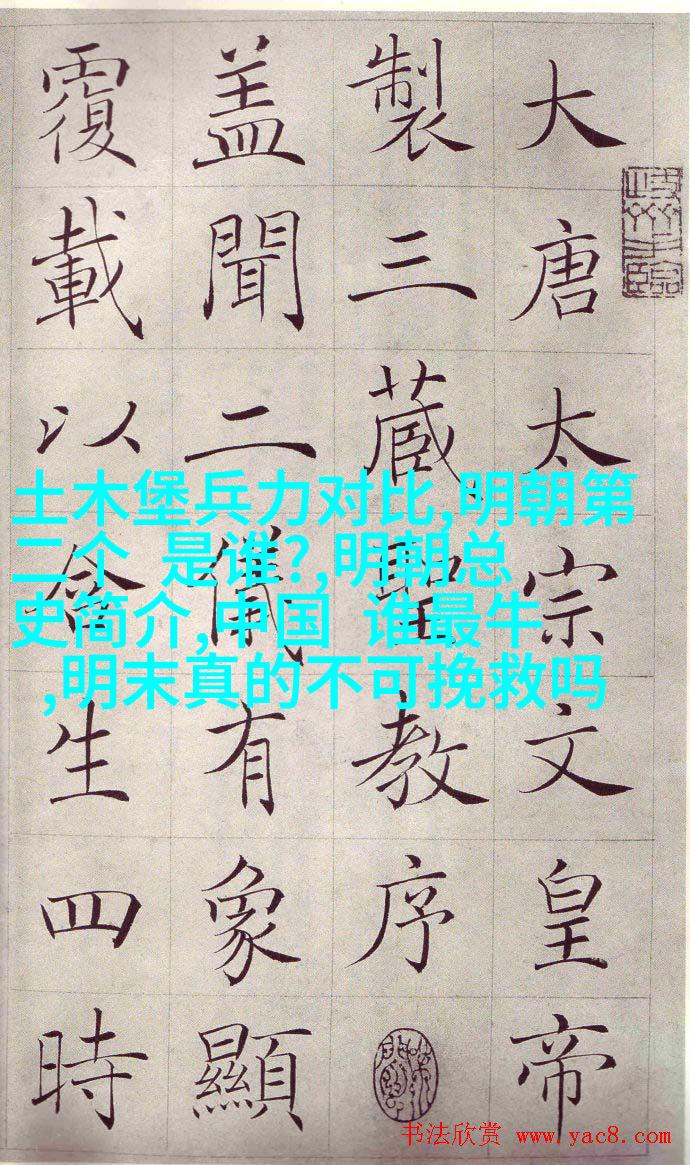 大唐太宗文皇帝
製三藏聖教序
盖聞二儀有象顯
覆載以含生四時
土木堡兵力对比,明朝第
二个 是谁?,明朝总
史简介,中国 谁最牛
,明末真的不可挽救吗
书法欣赏 www.yac8.com